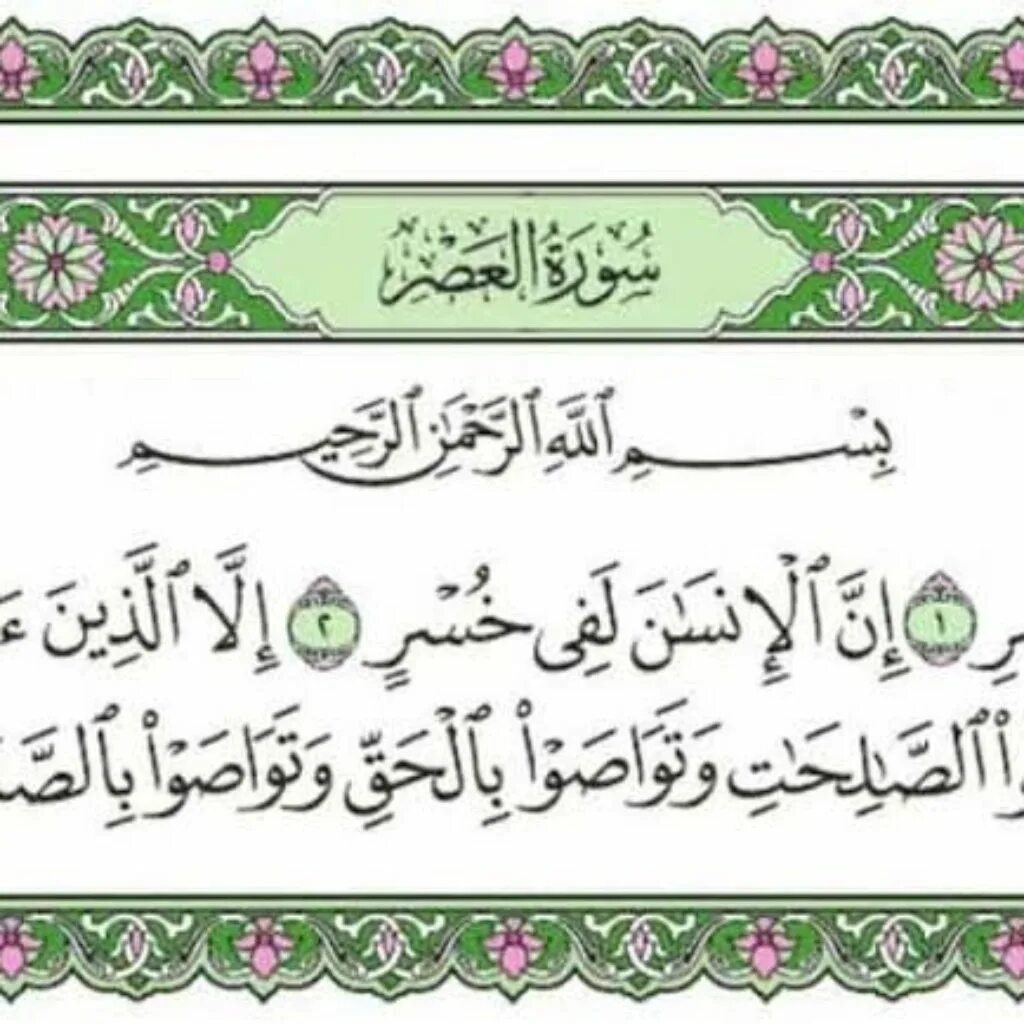 سُورَةُ العَصْرِ
بِسْمِ ٱللَّهِ ٱلرَّحْمَٰنِ ٱلرَّحِيمِ
١ إِنَّ ٱلْإِنسَٰنَ لَفِى خُسْرٍ ٢ إِلَّا ٱلَّذِينَ
ٱلصَّٰلِحَٰتِ وَتَوَاصَوْا۟ بِٱلْحَقِّ وَتَوَاصَوْا۟